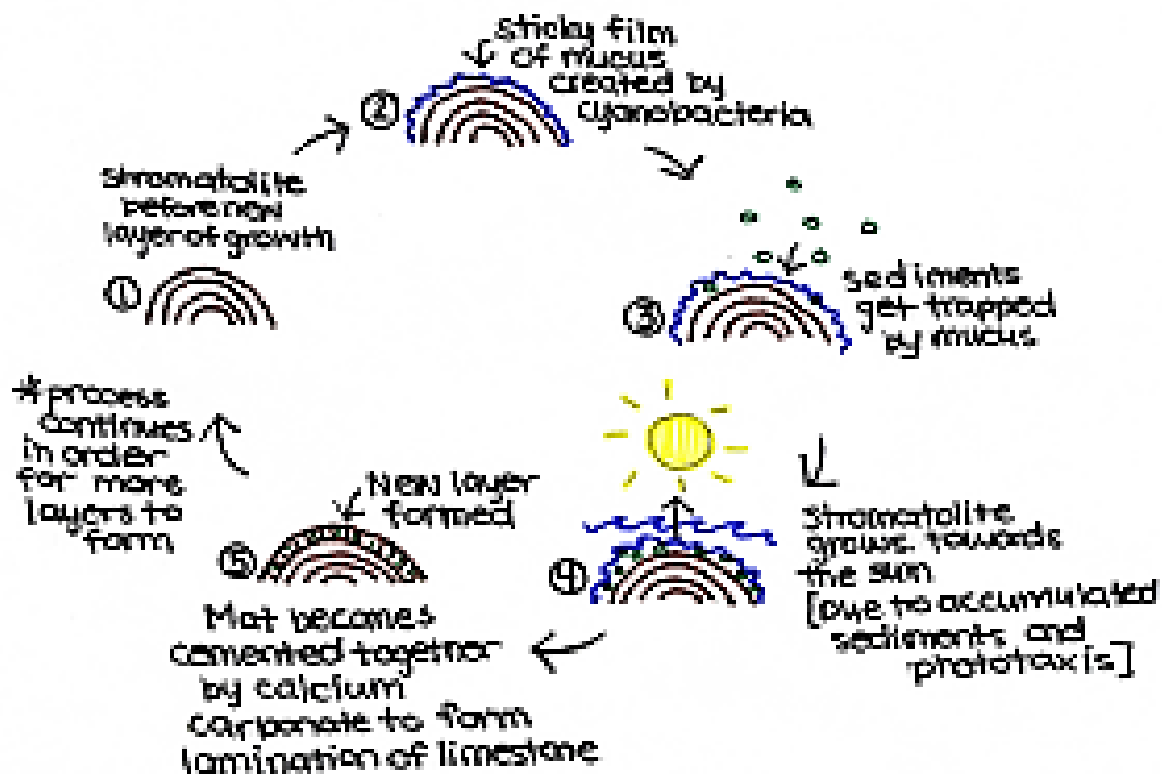 ①
Stromatolite
before new
layer of growth
②
Sticky film
of mucus
created by
cyanobacteria
③
sediments
get trapped
by mucus
④
Stromatolite
grows towards
the sun
[Due to accumulated
sediments and
phototaxis]
⑤
New layer
formed
Mat becomes
cemented together
by calcium
carbonate to form
lamination of limestone
*process
continues
in order
for more
layers to
form